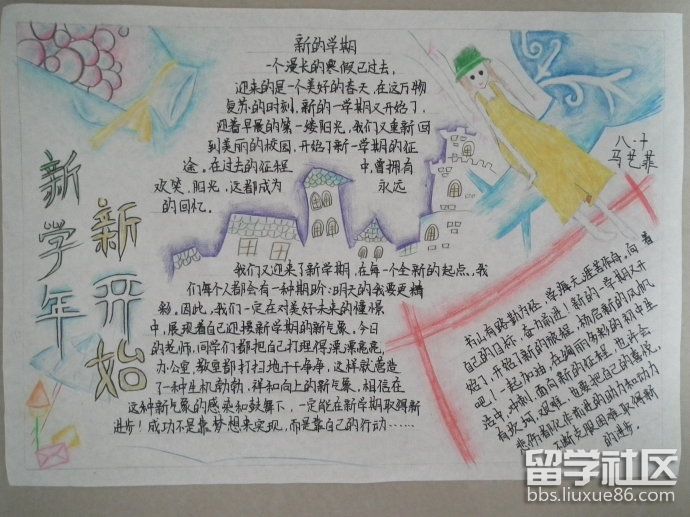 新学年
新开始
新的学期
一个漫长的寒假已过去,
迎来的是一个美好的春天,在这万物
复苏的时刻,新的一学期又开始了,
迎着早晨的第一缕阳光,我们又重新回
到美丽的校园,开始了新一学期的征
途。在过去的征程中,曾拥有
欢笑、阳光,这都成为永远
的回忆。
八.十
马艺菲
我们又迎来了新学期,在每一个全新的起点,我
们每个人都会有一种期盼:明天的我要更精
彩。因此,我们一定在对美好未来的憧憬
中,展现着自己迎接新学期的新气象,今日
的老师,同学们都把自己打理得漂漂亮亮,
办公室、教室都打扫地干干净净,这样就营造
了一种生机勃勃,祥和向上的新气象,相信在
这种新气象的感染和鼓舞下,一定能在新学期取得新
进步!成功不是靠梦想来实现,而是靠自己的行动……
书山有路勤为径,学海无涯苦作舟,向着
自己的目标,奋力前进!新的一学期又开
始了,开始了新的旅程,扬起新的风帆
吧!一起加油,在绚丽多彩的初中生
活中,冲刺,面向新的征程,也许会
有坎坷、艰难,也要把自己的喜悦,
悲伤都化作前进的动力和动力
不断克服困难,取得新
的进步。
留学社区
bbs.liuxue86.com